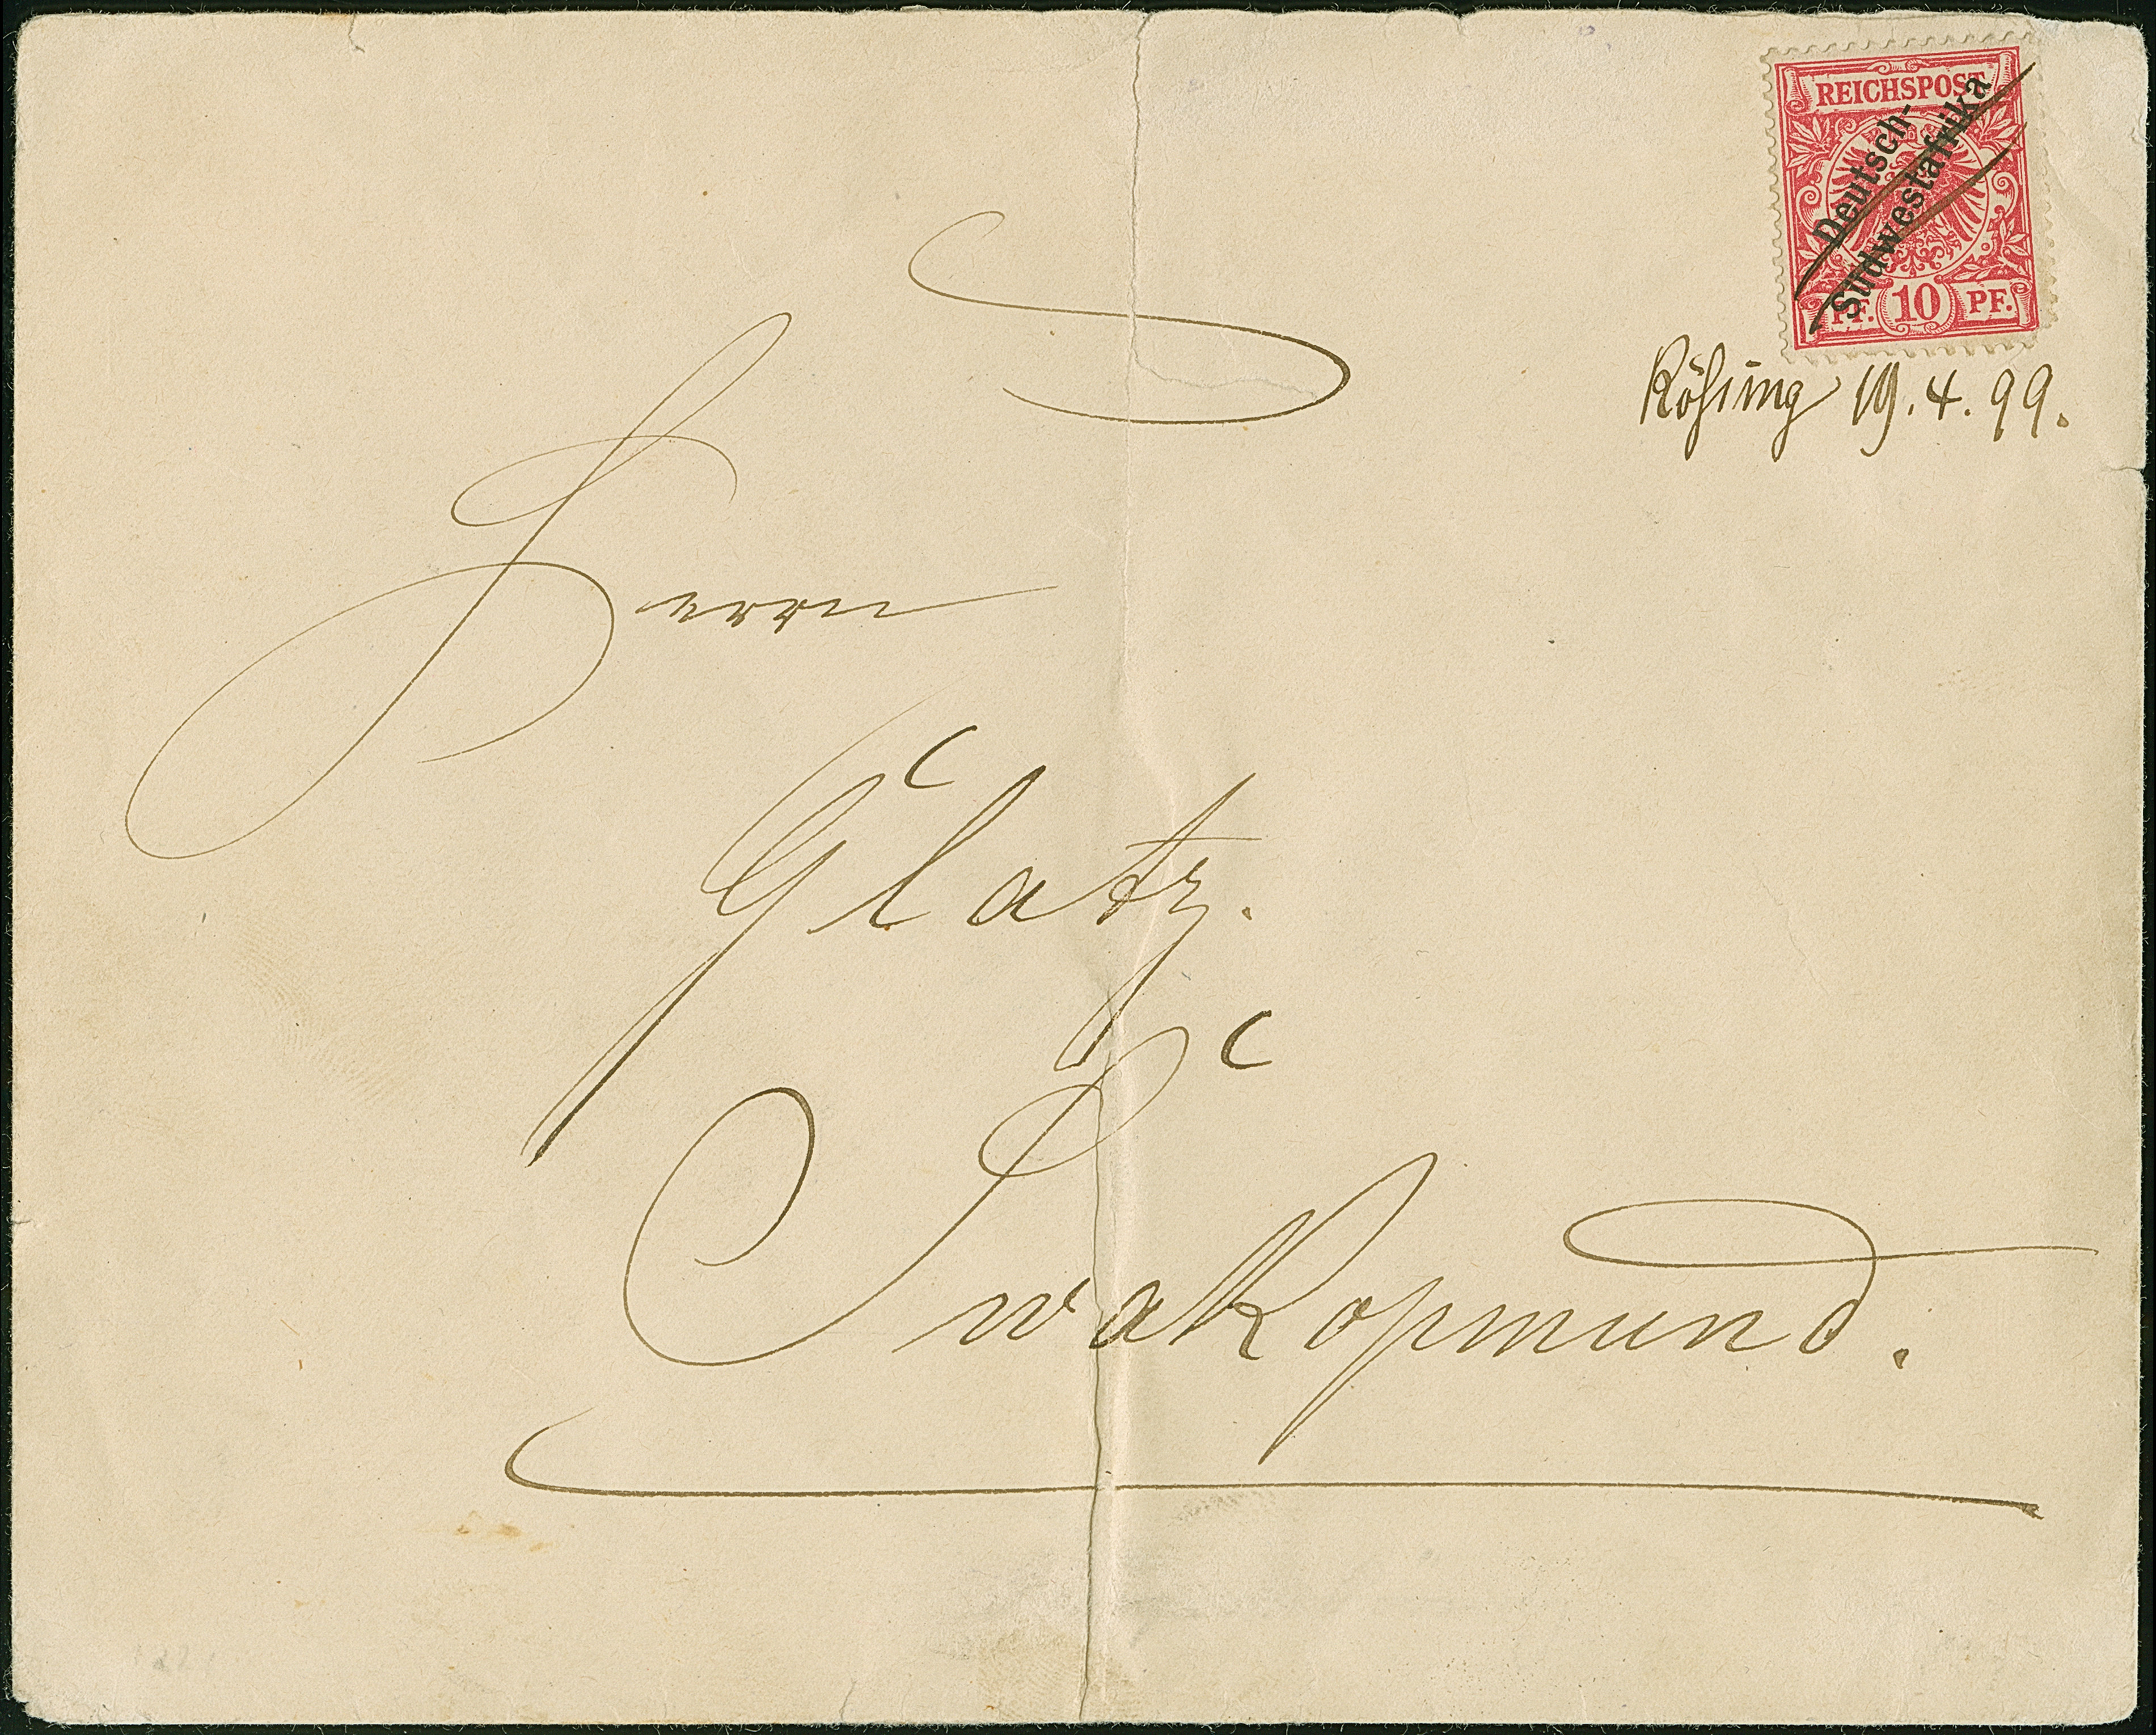 REICHSPOST
Deutsch-
Südwestafrika
PF. 10 PF.
Rössing 19.4.99.
Herrn
Glatz.
Swakopmund.